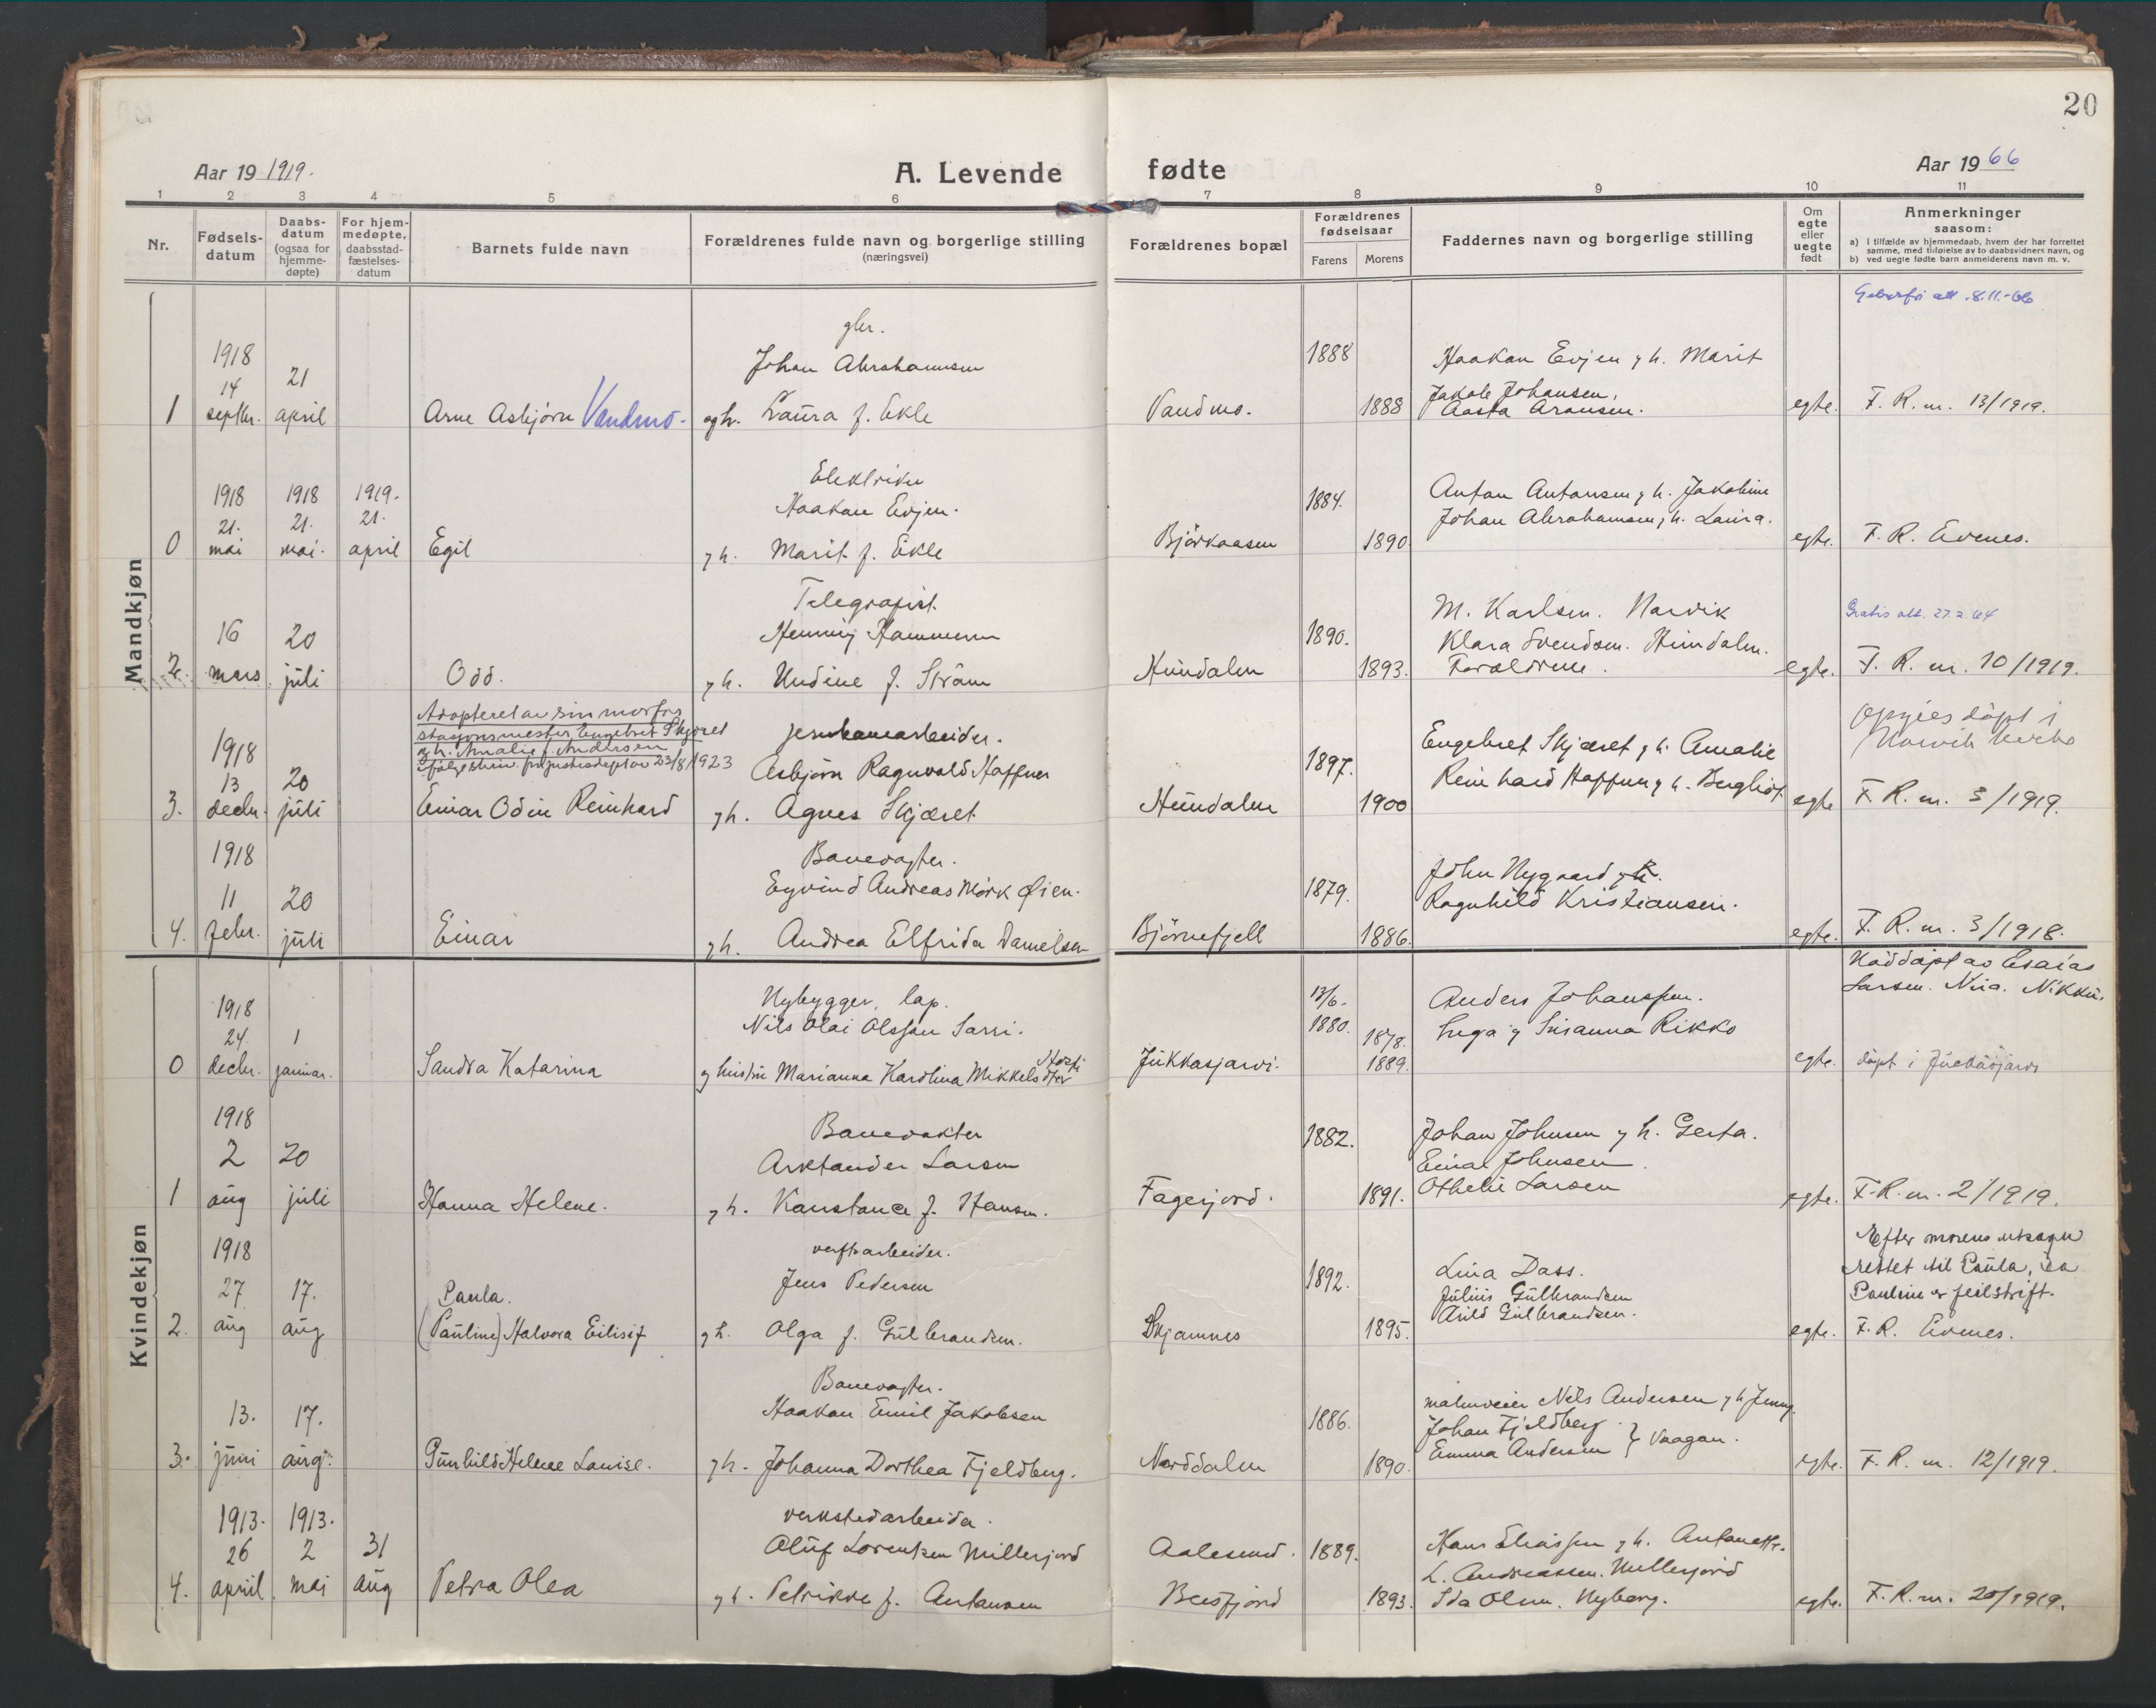 20
Aar 19 1919.
A. Levende fødte
Aar 19 66
1 2 3 4 5 6 7 8 9 10 11
Nr.
Fødsels-
datum
Daabs-
datum
(ogsaa for
hjemme-
døpte)
For hjem-
medøpte,
daabsstad-
fæstelses-
datum
Barnets fulde navn
Forældrenes fulde navn og borgerlige stilling
(næringsvei)
Forældrenes bopæl
Forældrenes
fødselsaar
Farens Morens
Faddernes navn og borgerlige stilling
Om
egte
eller
uegte
født
Anmerkninger
saasom:
a) i tilfælde av hjemmedaab, hvem der har forrettet
samme, med tilføielse av to daabsvidners navn, og
b) ved uegte fødte barn anmelderens navn m. v.
Mandkjøn
att. 8.11.-66
gbr.
1918 Johan Abrahamsen 1888 Haakon Evjen g h. Marit
14 21 Jakob Johansen,
1 septbr. april Arne Asbjørn Vandmo- og h. Laura f. Ekle Vandmo. 1888 Aasta Aronsen. egte. F. R. nr. 13/1919.
Elektriker
1918 1918 1919. Haakon Evjen. 1884. Anton Antonsen g h. Jakobine
21. 21. 21. Johan Abrahamsen g h. Laura.
0 mai mai. april Egil g h. Marit f. Ekle Bjørkaasen 1890 egte. F. R. Evenes.
Telegrafist. M. Karlsen. Narvik Gratis att. 27.2.64
16 20 Henning Hammeren 1890. Klara Svendsen. Hundalen.
2. mars juli Odd. g h. Undine f. Strøm Hundalen 1893. Forældrene. egte. F. R. nr. 10/1919.
Adopteret av sin morfar
stasjonsmester Engebret Skjæret
g h. Amalie f. Andersen
ifølge 23/8 1923
1918 jernbanearbeider. Engebret Skjæret g h. Amalie døpt i
13 20 Asbjørn Ragnvald Haffner 1897. Reinhard Haffner g h. Bergliot. Narvik kirke
3. decbr. juli Einar Odin Reinhard g h. Agnes Skjæret Hundalen 1900 egte F. R. nr. 5/1919.
1918 Banevogter. John Nygaard g h.
11 20 Eyvind Andreas Mørk Øien. 1879. Ragnhild Kristiansen.
4. febr. juli Einar g h. Andrea Elfrida Danielsen Bjørnefjell 1886. egte. F. R. nr. 3/1918.
Kvindekjøn
Nøddøpt av Esaias
Larsen. Nikku.
1918 Nybygger, lap. 13/6. Anders Johanssen.
24. 1 Nils Olai Olsson Sarri. 1880. 1878. Inga g Susanna Rikko
0 decbr. januar. Sandra Katarina g hustru Marianna Karolina Mikkelsdtter Jukkasjarvi. 1889. egte. døpt i Juckasjarvi
1918 Banevakter 1882. Johan Johnsen g h. Gerta.
2 20 Arktander Larsen Einar Johnsen.
1 aug juli Hanna Helene. g h. Konstance f. Hansen. Fagerjord. 1891. Othelie Larsen egte. F. R. nr. 2/1919.
1918 verftsarbeider. Efter morens utsagn
27 17. Jens Pedersen 1892. Lina Dass. rettet til Paula, da
Paula. Julius Gulbrandsen Pauline er feilskrift.
2. aug aug (Pauline) Halvora Eilisif g h. Olga f. Gulbrandsen. Skjomnes 1895. Arild Gulbrandsen. egte. F. R. Evenes.
Banevogter. malmveier Nils Andersen g h Jenny.
13. 17. Haakon Emil Jakobsen 1886. Johan Fjeldberg } Vaagan.
3. juni aug. Gunhild Helene Louise. g h. Johanna Dorthea Fjeldberg. Norddalen 1890. Emma Andersen egte. F. R. nr. 12/1919.
1913. 1913. verkstedarbeider.
26 2 31 Oluf Lorentsen Millerjord Aalesund. 1889. Hans Eliassen g h. Antonette.
L. Andreassen. Millerjord
4. april. mai aug Petra Olea g h. Petrikke f. Antonsen Beisfjord 1893. Ida Olsen. Nyborg. egte. F. R. nr. 20/1919.